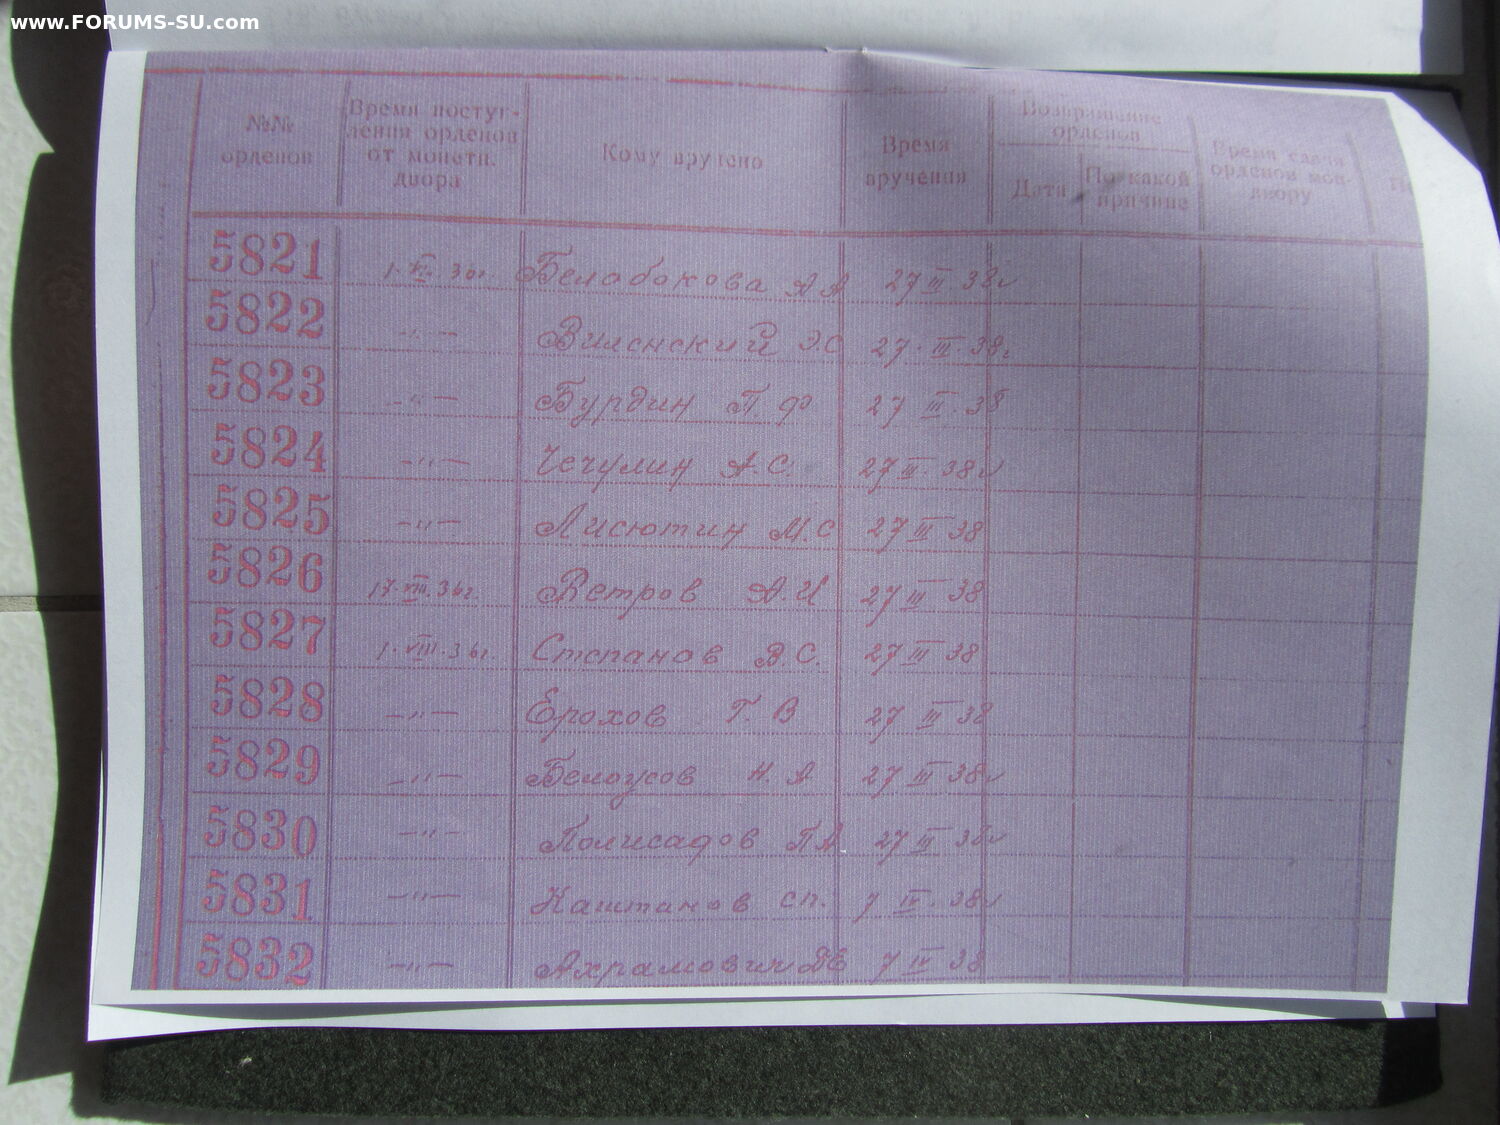 www.FORUMS-SU.com
№№ орденов
Время поступления орденов от монетн. двора
Кому вручено
Время вручения
Возвращение орденов
Дата
По какой причине
Время сдачи орденов мон. двору
5821 36г. Белобокова А А 27 III 38г
5822 -"- Виленский Э С 27 · III · 38г
5823 -"- Бурдин П. Ф 27 III · 38
5824 -"- Чечулин А. С. 27 III · 38г
5825 -"- Лисютин М. С 27 III 38
5826 17 · VIII. 36г. Ветров А. И 27 III 38
5827 1 · VIII · 36г. Степанов В. С. 27 III 38
5828 -"- Ерохов Г. В 27 III 38
5829 -"- Белоусов Н. А 27 III 38г
5830 -"- Полисадов П А 27 III 38г
5831 -"- Каштанов 7 IV · 38г
5832 -"- Ахрамович 7 IV 38